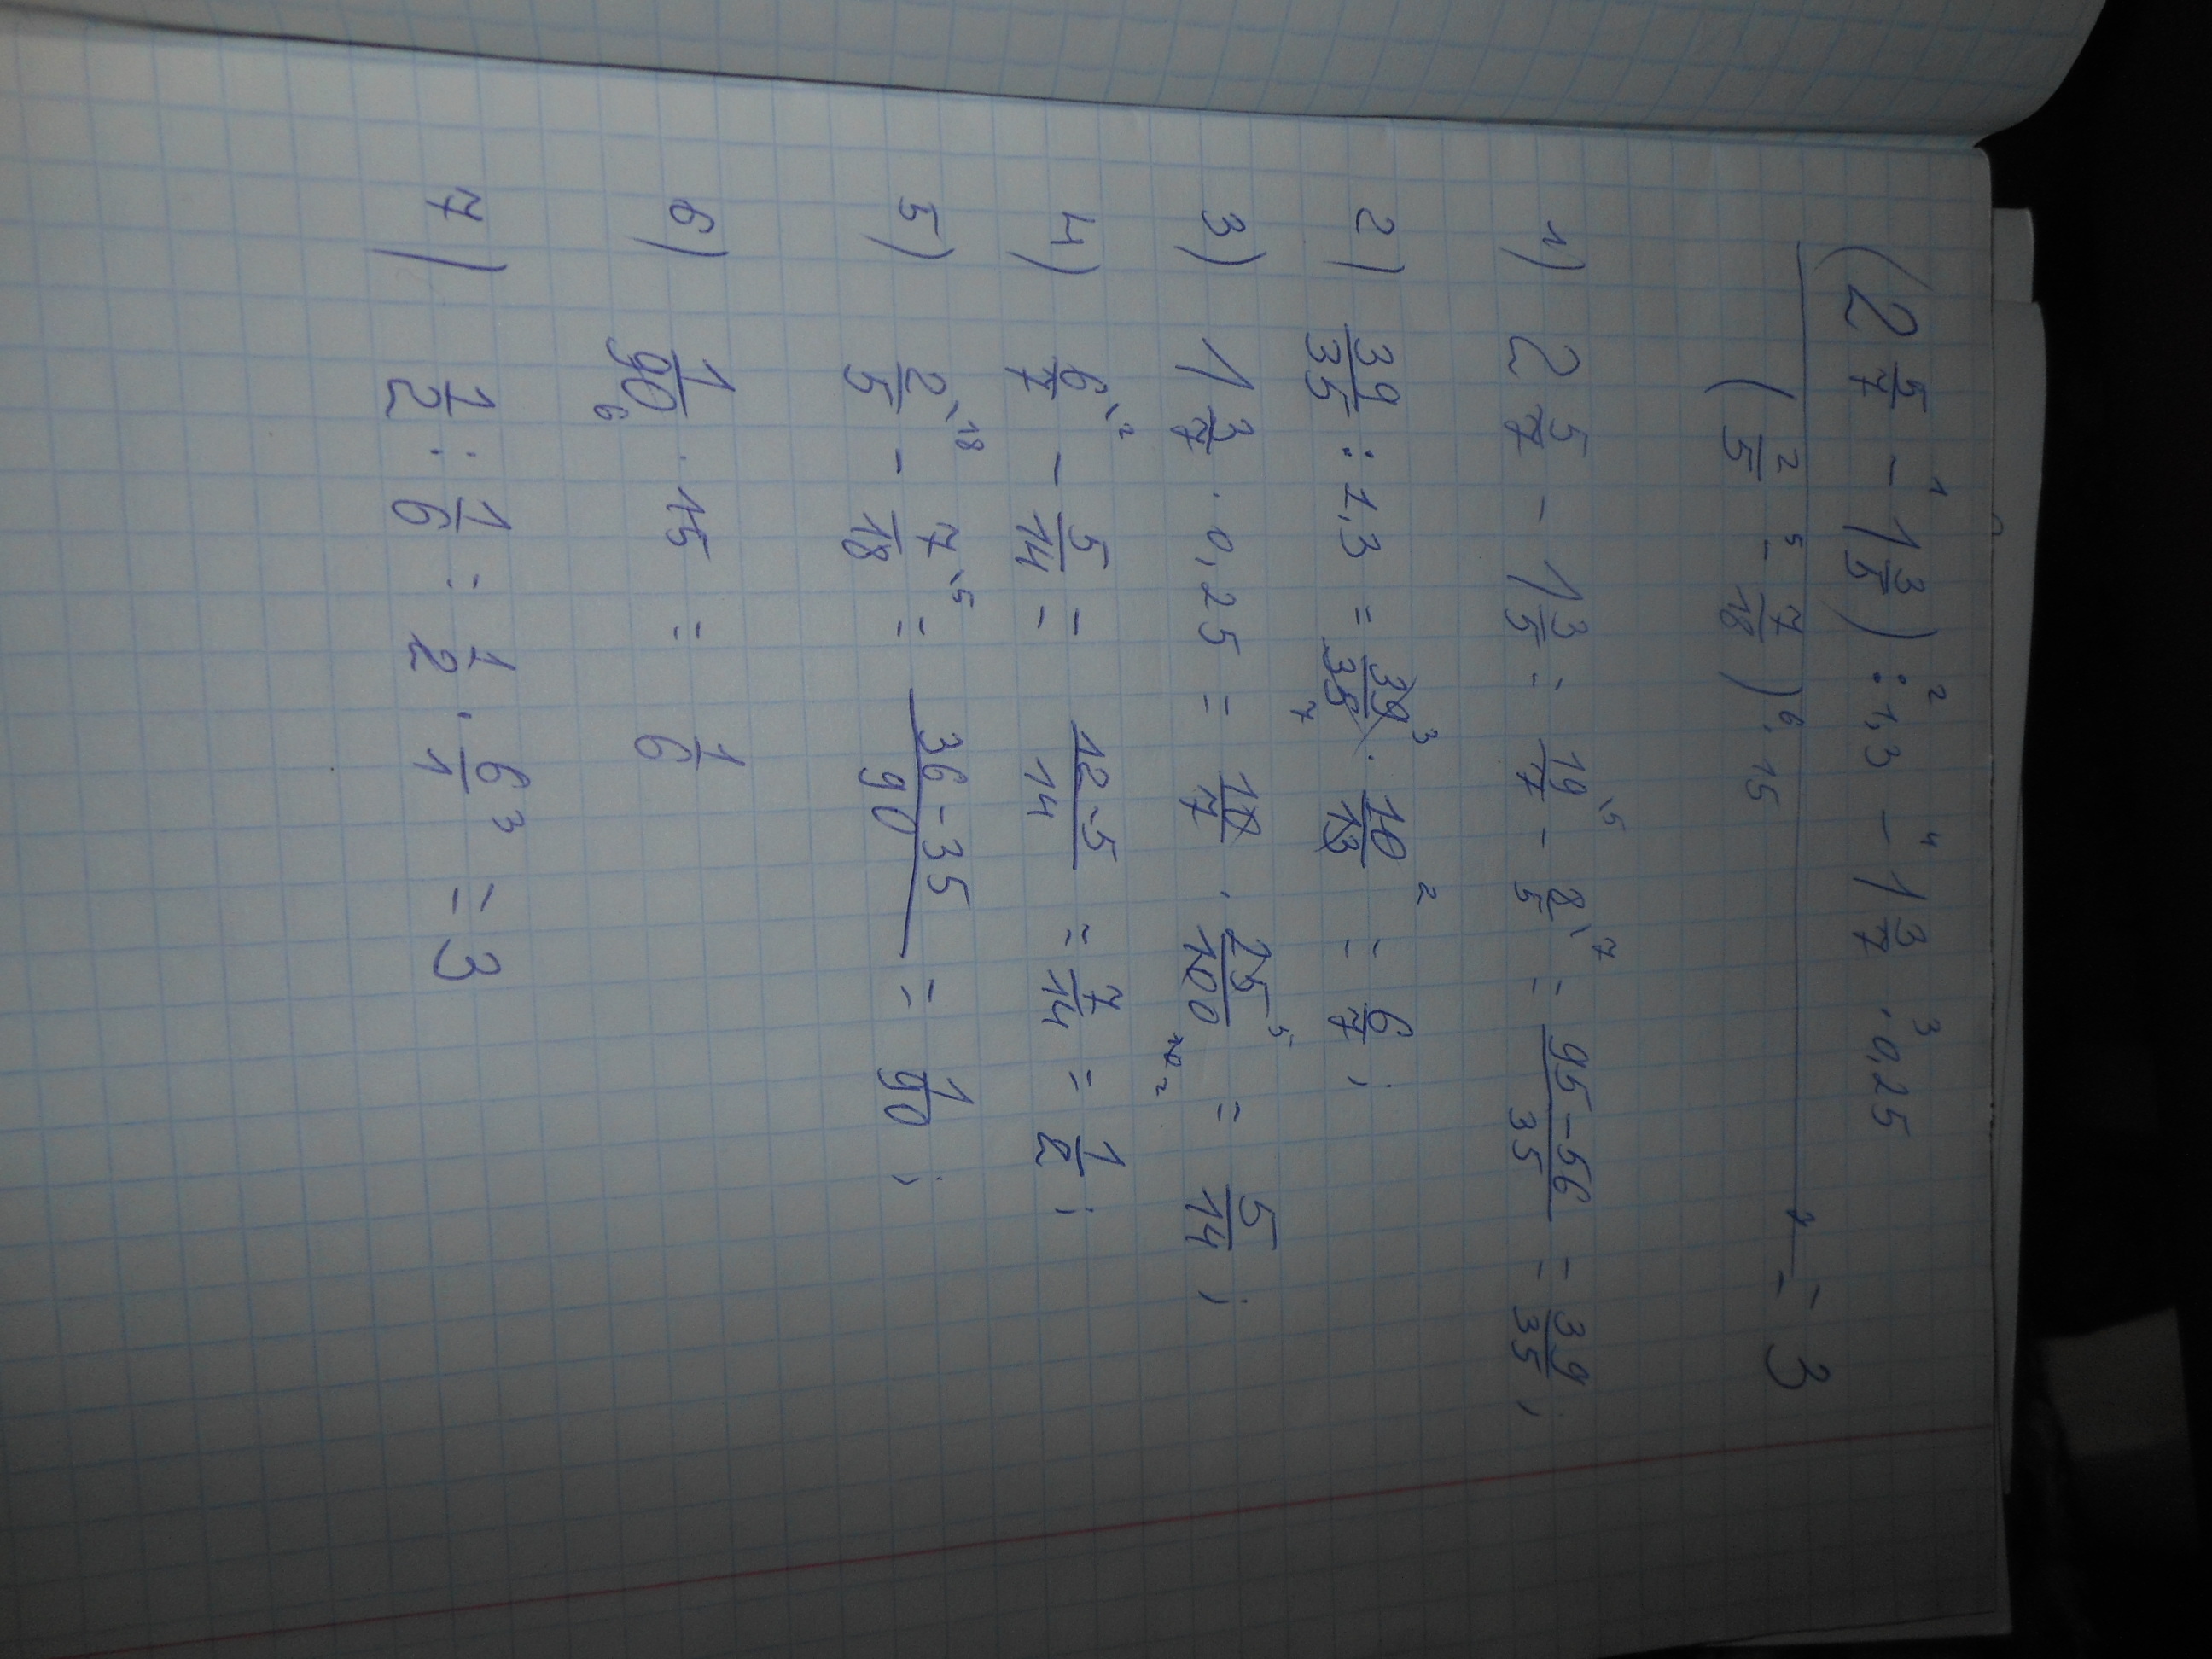 (2 5/7 - 1 3/5) : 1,3 - 1 3/7 · 0,25
(2/5 - 7/18) · 15 = 3
1) 2 5/7 - 1 3/5 = 19/7 - 8/5 = (95-56)/35 = 39/35;
2) 39/35 : 1,3 = 39/35 · 10/13 = 6/7;
3) 1 3/7 · 0,25 = 10/7 · 25/100 = 5/14;
4) 6/7 - 5/14 = (12-5)/14 = 7/14 = 1/2;
5) 2/5 - 7/18 = (36-35)/90 = 1/90;
6) 1/90 · 15 = 1/6
7) 1/2 : 1/6 = 1/2 · 6/1 = 3